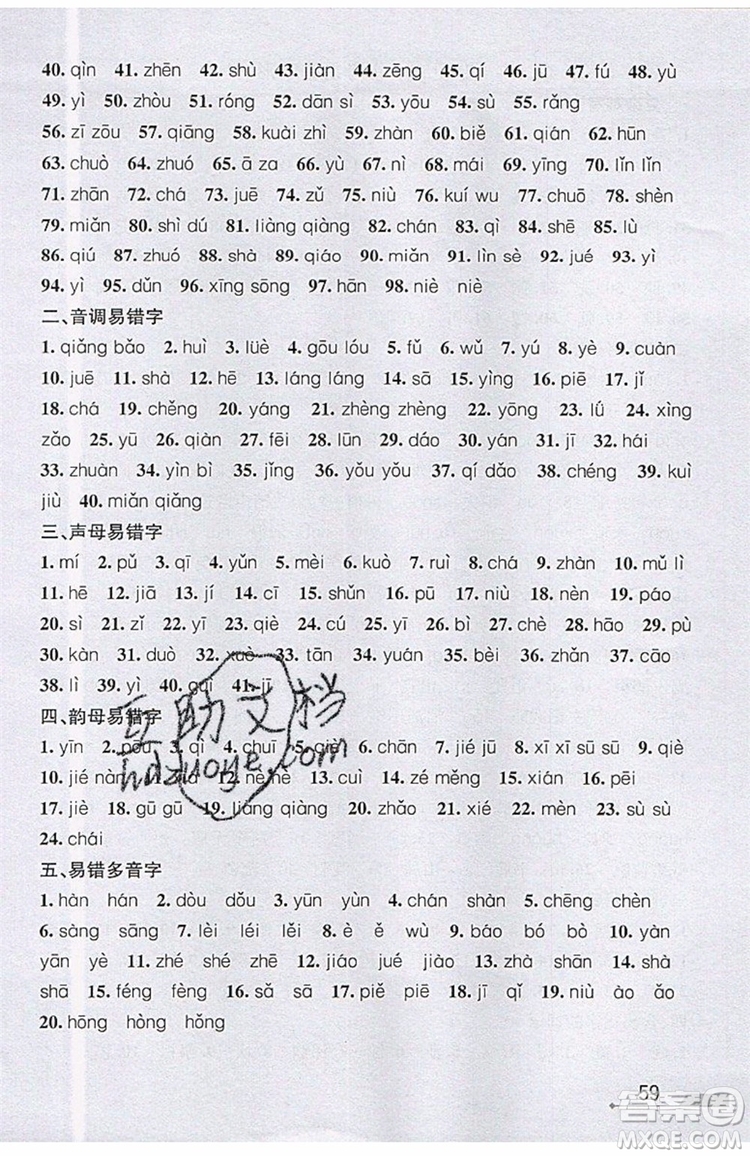 40. qìn 41. zhēn 42. shù 43. jiàn 44. zēng 45. qí 46. jū 47. fú 48. yù
49. yì 50. zhòu 51. róng 52. dān sì 53. yōu 54. sù 55. rǎng
56. zī zōu 57. qiāng 58. kuài zhì 59. zhàn 60. biě 61. qián 62. hūn
63. chuò 64. zhuó 65. ā za 66. yù 67. nì 68. mái 69. yīng 70. lǐn lǐn
71. zhān 72. chá 73. juē 74. zǔ 75. niù 76. kuí wu 77. chuō 78. shèn
79. miǎn 80. shì dú 81. liàng qiàng 82. chán 83. qì 84. shē 85. lù
86. qiú 87. zhuó 88. shà 89. qiáo 90. miǎn 91. lìn sè 92. jué 93. yì
94. yì 95. dǔn 96. xīng sōng 97. hān 98. niè niè
二、音调易错字
1. qiǎng bǎo 2. huì 3. lüè 4. gōu lóu 5. fǔ 6. wǔ 7. yú 8. yè 9. cuàn
10. juē 11. shà 12. hē 13. láng láng 14. sā 15. yìng 16. piē 17. jǐ
18. chá 19. chěng 20. yáng 21. zhèng zhèng 22. yōng 23. lǘ 24. xìng
zǎo 25. yū 26. qiàn 27. fēi 28. lūn 29. dáo 30. yán 31. jī 32. hái
33. zhuàn 34. yìn bì 35. jǐng 36. yǒu yǒu 37. qí 38. chéng 39. kuì
jiù 40. miǎn qiǎng
三、声母易错字
1. mí 2. pǔ 3. qì 4. yǔn 5. mèi 6. kuò 7. ruì 8. chá 9. zhàn 10. mǔ lì
11. hē 12. jiā 13. jí 14. cì 15. shǔn 16. pū 17. niù 18. nèn 19. páo
20. sì 21. zǐ 22. yì 23. qiè 24. cú 25. yì 26. bì 27. chè 28. zǎo 29. pù
30. kàn 31. duò 32. 33. tān 34. yuán 35. bèi 36. zhǎn 37. cāo
38. lì 39. yì 40. gāi 41. jī
四、韵母易错字
1. yīn 2. póu 3. qì 4. chuī 5. qiè 6. chān 7. jié jū 8. xī xī sū sū 9. qiè
10. jié nàn 11. zāi 12. nè nè 13. cuì 14. zé měng 15. xián 16. pēi
17. jiè 18. gū gū 19. liàng qiàng 20. zhǎo 21. xié 22. mèn 23. sù sù
24. chái
五、易错多音字
1. hàn hán 2. dòu dǒu 3. yūn yùn 4. chán shàn 5. chēng chèn
6. sàng sāng 7. lèi léi lěi 8. è ě wù 9. báo bó bò 10. yàn
yān yè 11. zhé shé zhē 12. jiáo jué jiào 13. zhā zhá 14. shà
shā 15. féng fèng 16. sǎ sā 17. piě piē 18. jī qǐ 19. niù ào ǎo
20. hōng hòng hǒng
互助文档
hdzuoye.com
59
答案圈
MXQE.COM